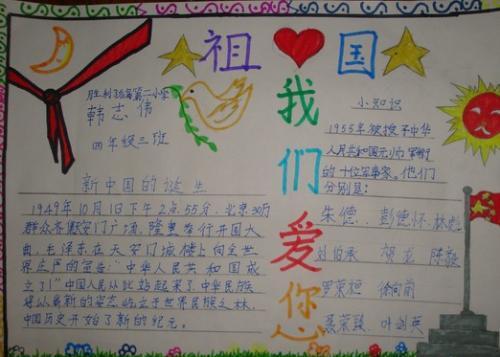 祖国
我们爱你
胜利路第二小学
韩志伟
四年级三班
新中国的诞生
1949年10月1日下午2点55分,北京30万
群众齐聚天安门广场,隆重举行开国大
典,毛泽东在天安门城楼上向全世
界庄严的宣告:"中华人民共和国成
立了!"中国人从此站起来了,中华民族
将以崭新的姿态屹立于世界民族之林,
中国历史开始了新的纪元。
小知识
1955年被授予中华
人民共和国元帅军衔
的十位军事家。他们
分别是:
朱德、彭德怀、林彪
刘伯承 贺龙 陈毅
罗荣桓 徐向前
聂荣臻、叶剑英